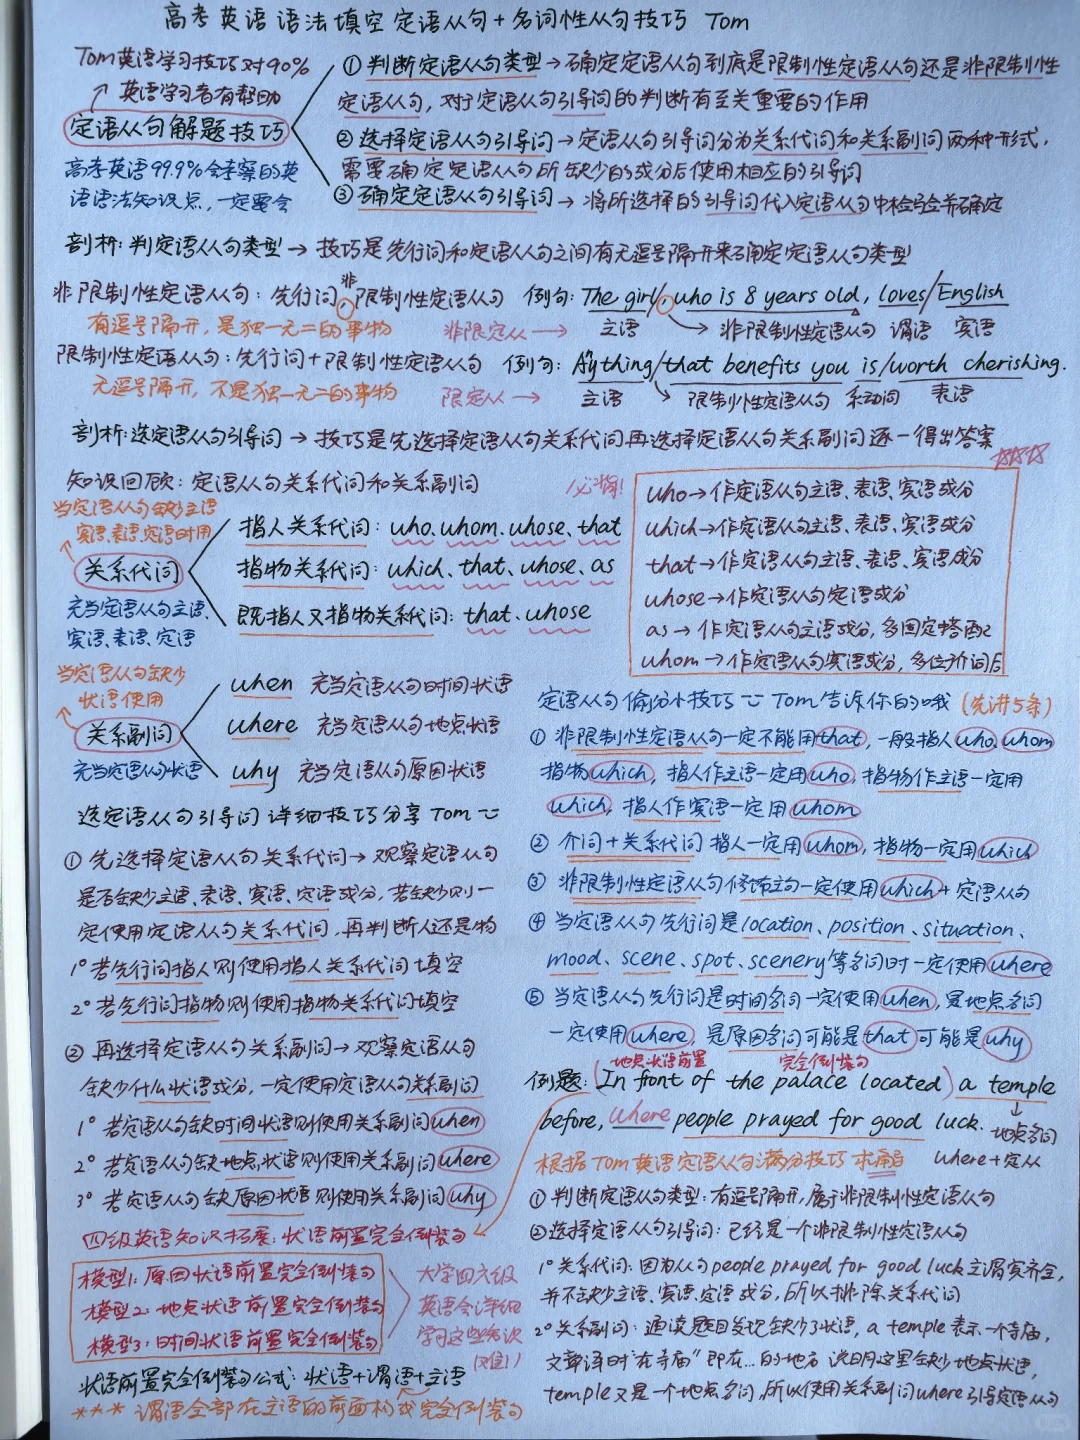 高考英语语法填空 定语从句+名词性从句技巧 Tom
Tom英语学习技巧对90%
英语学习者有帮助
定语从句解题技巧
高考英语99.9%会考察的英
语语法知识点,一定要会
① 判断定语从句类型→确定定语从句到底是限制性定语从句还是非限制性
定语从句,对于定语从句引导词的判断有至关重要的作用
② 选择定语从句引导词→定语从句引导词分为关系代词和关系副词两种形式,
需要确定定语从句所缺少的成分后使用相应的引导词
③ 确定定语从句引导词→将所选择的引导词代入定语从句中检验并确定
剖析:判定语从句类型→技巧是先行词和定语从句之间有无逗号隔开来确定定语从句类型
非限制性定语从句:先行词,非限制性定语从句 例句:The girl/, who is 8 years old, loves/English
有逗号隔开,是独一无二的事物 非限定从→ 主语 非限制性定语从句 谓语 宾语
限制性定语从句:先行词+限制性定语从句 例句:Anything/that benefits you is/worth cherishing.
无逗号隔开,不是独一无二的事物 限定从→ 主语 限制性定语从句 系动词 表语
剖析:选定语从句引导词→技巧是先选择定语从句关系代词再选择定语从句关系副词逐一得出答案
知识回顾:定语从句关系代词和关系副词
当定语从句缺少主语
宾语、表语、定语时用
关系代词
充当定语从句主语、
宾语、表语、定语
指人关系代词:who、whom、whose、that
指物关系代词:which、that、whose、as
既指人又指物关系代词:that、whose
必背!
who→作定语从句主语、表语、宾语成分
which→作定语从句主语、表语、宾语成分
that→作定语从句主语、表语、宾语成分
whose→作定语从句定语成分
as→作定语从句主语成分,多固定搭配
whom→作定语从句宾语成分,多位于介词后
当定语从句缺少
状语使用
关系副词
充当定语从句状语
when 充当定语从句时间状语
where 充当定语从句地点状语
why 充当定语从句原因状语
选定语从句引导词详细技巧分享 Tom
① 先选择定语从句关系代词→观察定语从句
是否缺少主语、表语、宾语、定语成分,若缺少则一
定使用定语从句关系代词,再判断人还是物
1° 若先行词指人则使用指人关系代词填空
2° 若先行词指物则使用指物关系代词填空
② 再选择定语从句关系副词→观察定语从句
缺少什么状语成分,一定使用定语从句关系副词
1° 若定语从句缺时间状语则使用关系副词when
2° 若定语从句缺地点状语则使用关系副词where
3° 若定语从句缺原因状语则使用关系副词why
四级英语知识拓展:状语前置完全倒装句
模型1:原因状语前置完全倒装句
模型2:地点状语前置完全倒装句
模型3:时间状语前置完全倒装句
大学四六级
英语会详细
学习这些知识
(难!)
状语前置完全倒装句公式:状语+谓语+主语
*** 谓语全部在主语的前面构成完全倒装句
定语从句偷分小技巧 Tom告诉你的哦(先讲5条)
① 非限制性定语从句一定不能用that,一般指人who、whom
指物which,指人作主语一定用who,指物作主语一定用
which,指人作宾语一定用whom
② 介词+关系代词指人一定用whom,指物一定用which
③ 非限制性定语从句修饰主句一定使用which+定语从句
④ 当定语从句先行词是location、position、situation、
mood、scene、spot、scenery等名词时一定使用where
⑤ 当定语从句先行词是时间名词一定使用when,是地点名词
一定使用where,是原因名词可能是that可能是why
地点状语前置 完全倒装句
例题:(In front of the palace located) a temple
before, where people prayed for good luck. 地点名词
根据Tom英语定语从句满分技巧求解 where+定从
① 判断定语从句类型:有逗号隔开,属于非限制性定语从句
②选择定语从句引导词:已经是一个非限制性定语从句
1°关系代词:因为从句people prayed for good luck主谓宾齐全,
并不缺少主语、宾语、定语成分,所以排除关系代词
2°关系副词:通读题目发现缺少了状语,a temple表示一个寺庙,
文章译时"在寺庙"即在...的地方 说明这里缺少地点状语,
temple又是一个地点名词,所以使用关系副词where引导定语从句